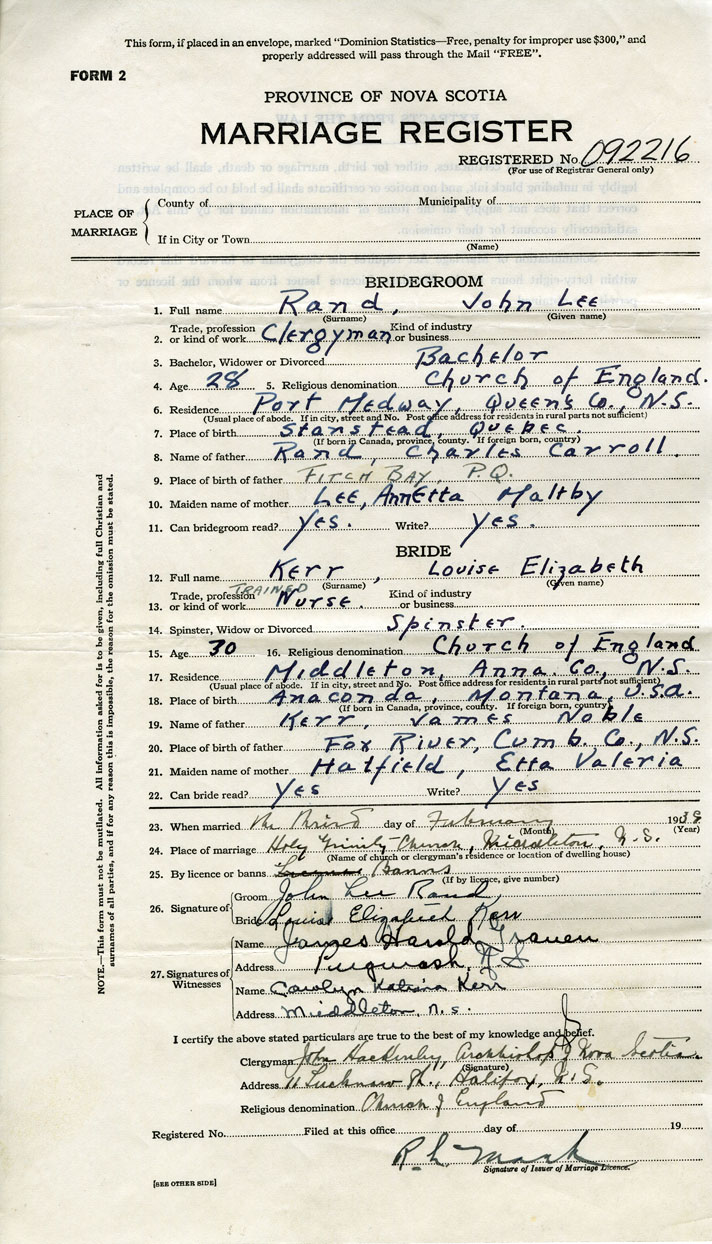 This form, if placed in an envelope, marked "Dominion Statistics—Free, penalty for improper use $300," and
properly addressed will pass through the Mail "FREE".
FORM 2
PROVINCE OF NOVA SCOTIA
MARRIAGE REGISTER
REGISTERED No. 092216
(For use of Registrar General only)
PLACE OF MARRIAGE
County of Municipality of
If in City or Town
(Name)
BRIDEGROOM
1. Full name Rand, John Lee
(Surname) (Given name)
2. Trade, profession or kind of work Clergyman Kind of industry or business
3. Bachelor, Widower or Divorced Bachelor
4. Age 28 5. Religious denomination Church of England.
6. Residence Port Medway, Queen's Co., N.S.
(Usual place of abode. If in city, street and No. Post office address for residents in rural parts not sufficient)
7. Place of birth Stanstead, Quebec.
(If born in Canada, province, county. If foreign born, country)
8. Name of father Rand, Charles Carroll.
9. Place of birth of father FITCH BAY, P.Q.
10. Maiden name of mother Lee, Annetta Maltby
11. Can bridegroom read? Yes. Write? Yes.
BRIDE
12. Full name Kerr, Louise Elizabeth
(Surname) (Given name)
13. Trade, profession or kind of work TRAINED Nurse. Kind of industry or business
14. Spinster, Widow or Divorced Spinster.
15. Age 30 16. Religious denomination Church of England
17. Residence Middleton, Anna. Co., N.S.
(Usual place of abode. If in city, street and No. Post office address for residents in rural parts not sufficient)
18. Place of birth Anaconda, Montana, U.S.A.
(If born in Canada, province, county. If foreign born, country)
19. Name of father Kerr, James Noble
20. Place of birth of father Fox River, Cumb. Co., N.S.
21. Maiden name of mother Hatfield, Etta Valeria
22. Can bride read? Yes Write? Yes
23. When married the Third day of February 19
(Month) (Year)
24. Place of marriage Holy Trinity Church, Middleton, N.S.
(Name of church or clergyman's residence or location of dwelling house)
25. By licence or banns Banns
(If by licence, give number)
26. Signature of
Groom John Lee Rand
Bride Louise Elizabeth Kerr
27. Signatures of Witnesses
Name James Harold
Address Pugwash, N.S
Name Carolyn Kerr
Address Middleton, N.S.
I certify the above stated particulars are true to the best of my knowledge and belief.
Clergyman John Hackenley, Archbishop of Nova Scotia.
(Signature)
Address Lucknow St., Halifax, N.S.
Religious denomination Church of England
Registered No. Filed at this office day of 19
R.L.
Signature of Issuer of Marriage Licence.
[SEE OTHER SIDE]
NOTE.—This form must not be mutilated. All information asked for is to be given, including full Christian and
surnames of all parties, and if for any reason this is impossible, the reason for the omission must be stated.